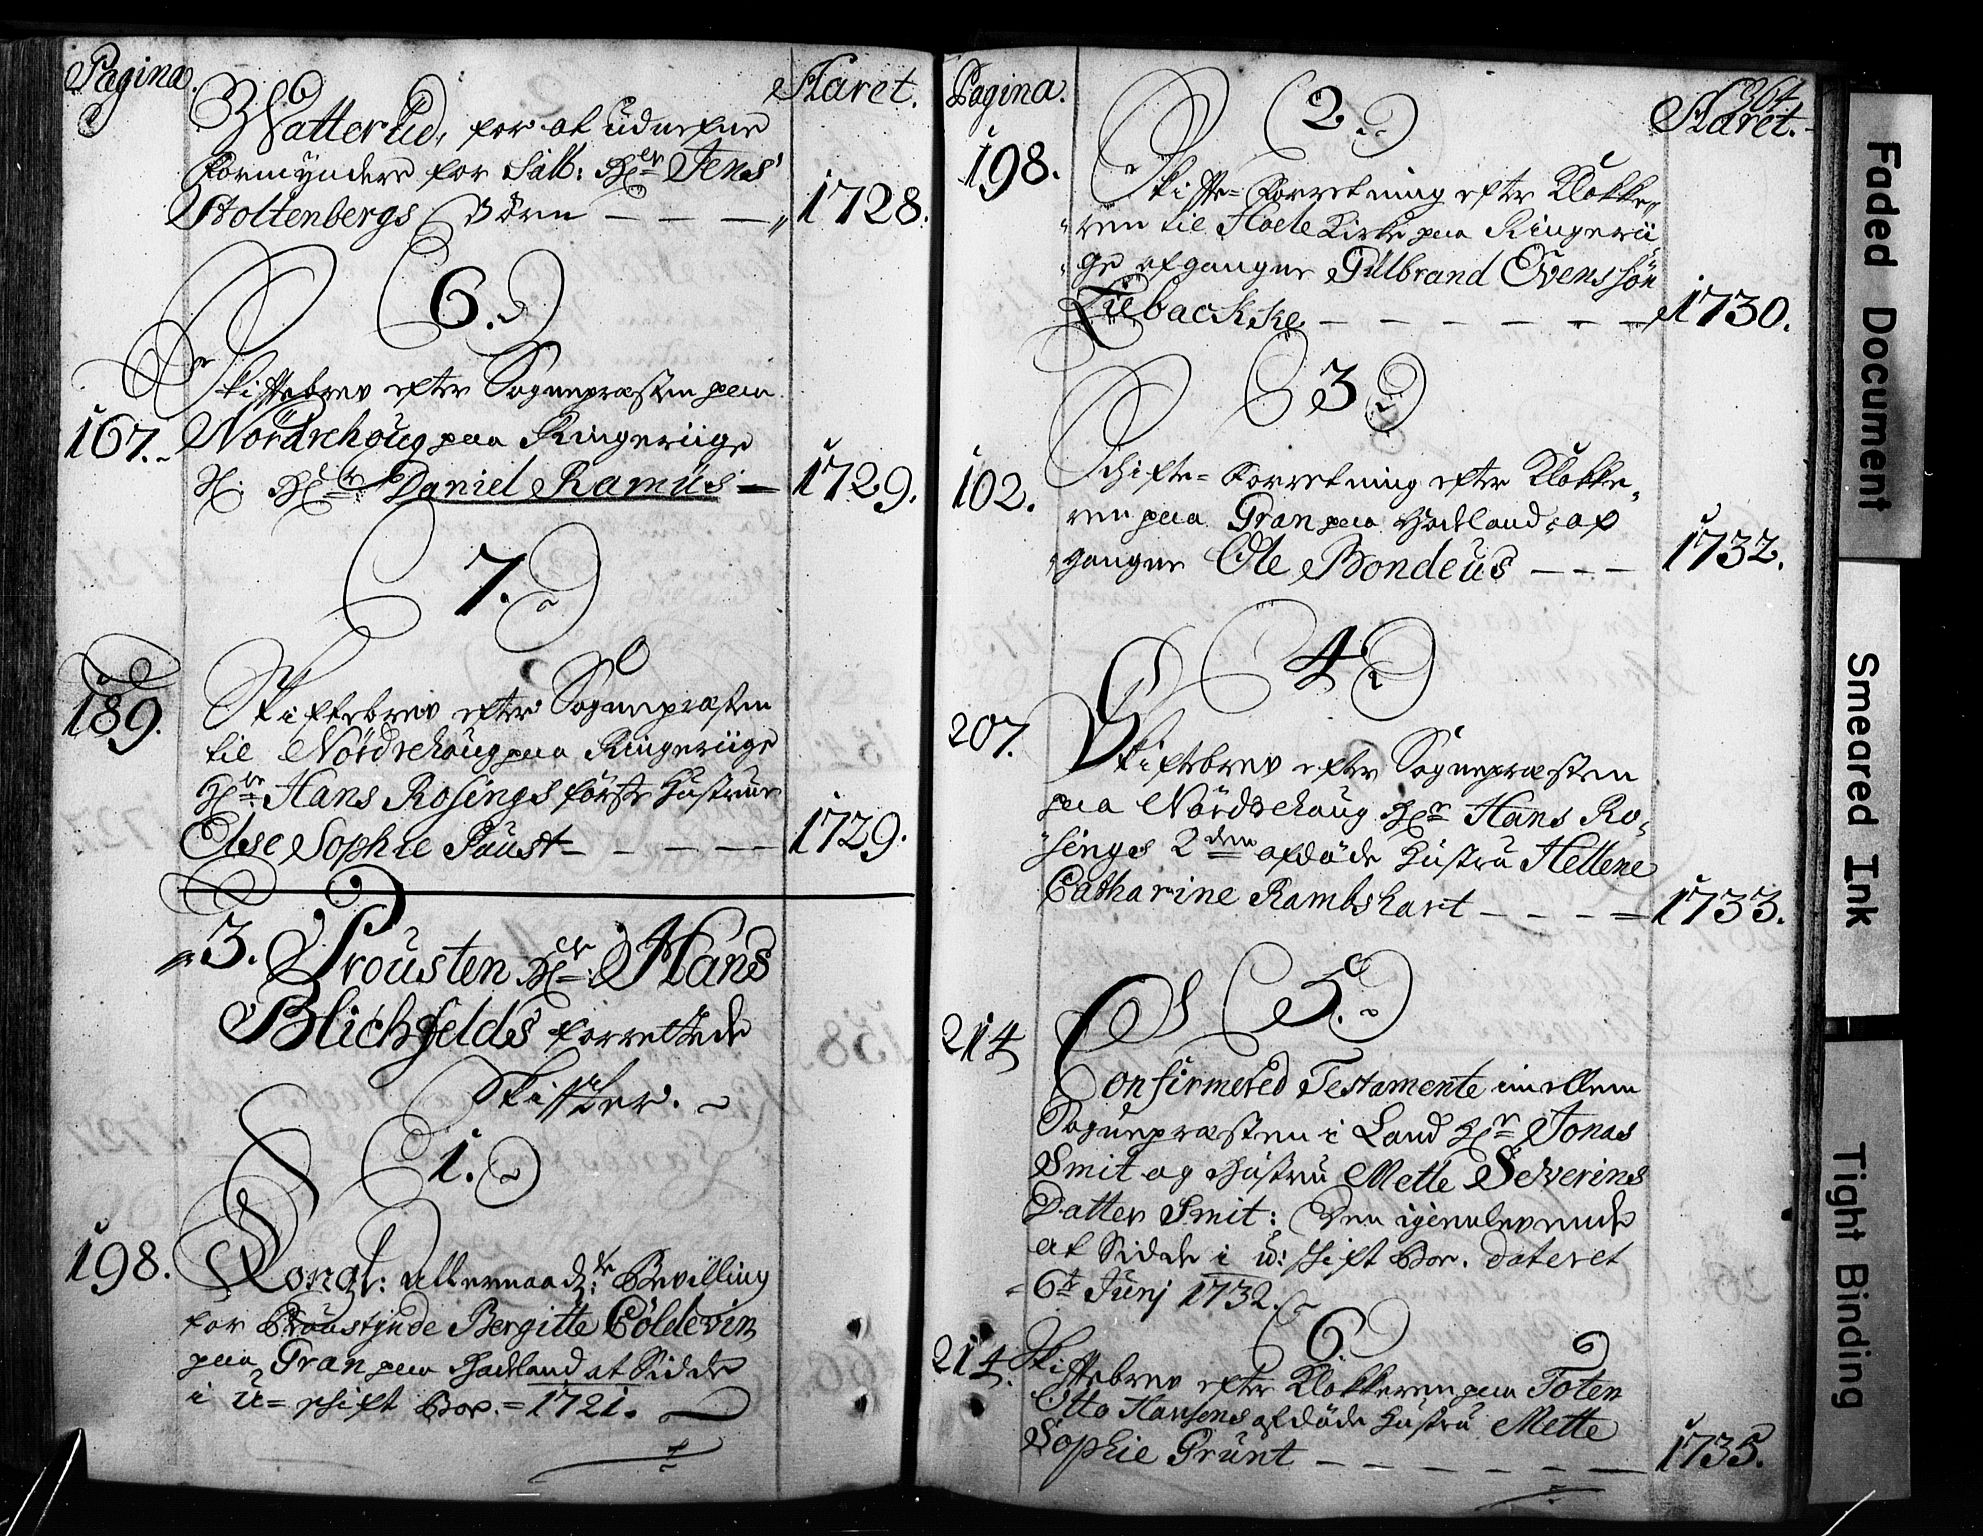 Pagina.
Aaret.
Watterud, for at udnefne
formyndere for Sal: Hr Jens
Stoltenbergs Børn — — — 1728.
6.
Skiftebrev efter Sognepræsten paa
167. Nordrehoug paa Ringeriige
H: Hr Daniel Ramus — 1729.
7.
189. Skiftebrev efter Sognepræsten
til Nordrehoug paa Ringeriige
Hr Hans Rosings første Hustrue
Else Sophie Paust — — — — 1729.
3. Prousten Hr: Hans
Blichfelds forrettede
Skifter.
1.
198. Kongl: allernaad:te Bevilling
for Proustinde Bergitte Coldevin
paa Gran paa Hadeland at Sidde
i U= skift Boe. = 1721.
364.
Pagina.
Aaret.
2.
198. Skifte= Forretning efter Klokke=
ren til Hoele Kirke paa Ringerii
ge afgangne Gulbrand Evenssøn
Tilbackke — — — — — — 1730.
3
102. Schifte= Forretning efter Klokke=
ren paa Gran paa Hadland, af
gangne Ole Bondeus — — — 1732.
4
207. Skiftebrev efter Sognepræsten
paa Nordrehaug Hr Hans Ro=
sings 2den afdøde Hustru Hellene
Catharine Rambshart — — — = 1733.
5.
214 Confirmered Testamente imellem
Sognepræsten i Land Hr Jonas
Smit og Hustru Mette Severins
Datter Smit: Den igienlevende
at Sidde i u: skift Boe. dateret
6te Junj 1732.
6.
214. Skiftebrev efter Klokkeren paa Toten
Otto Hansens afdøde Hustru Mette
Sophie Grunt — — — — — — 1735.
Faded Document
Smeared Ink
Tight Binding